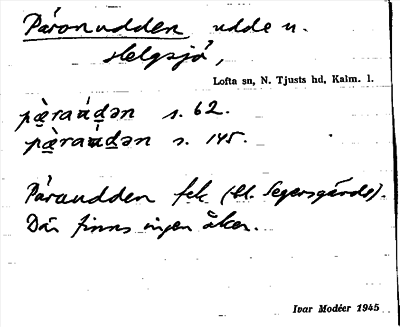 Påronudden udde n.
Helgsjö,
Lofta sn, N. Tjusts hd, Kalm. l.
pæ̀raúdən s. 62.
pæ̀raúdən s. 145.
Päraudden fek (bl. Segersgärde).
Där finns ingen åker.
Ivar Modéer 1945